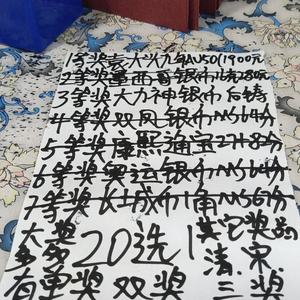 1等奖袁大头九年AU50(1900元
2等奖墨西哥银币鸿280元
3等奖大力神银币后铸
4等奖双凤银币MS64分
5等奖康熙通宝27+82分
6等奖奥运银币MS64分
7等奖长城币1角MS67分
大奖 20选1 其它奖品
多多 清宋
有单奖 双奖 三奖